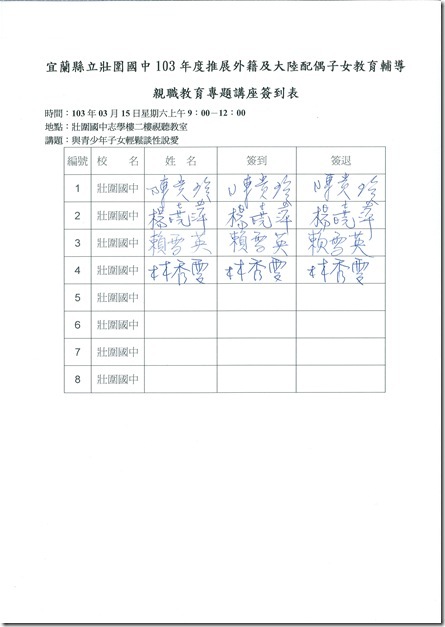 宜蘭縣立壯圍國中 103 年度推展外籍及大陸配偶子女教育輔導
親職教育專題講座簽到表
時間：103 年 03 月 15 日星期六上午 9：00－12：00
地點：壯圍國中志學樓二樓視聽教室
講題：與青少年子女輕鬆談性說愛
編號 校 名 姓 名 簽到 簽退
1 壯圍國中 陳貴珍 陳貴珍 陳貴珍
2 壯圍國中 楊曉萍 楊曉萍 楊曉萍
3 壯圍國中 賴雪英 賴雪英 賴雪英
4 壯圍國中 林秀雯 林秀雯 林秀雯
5 壯圍國中
6 壯圍國中
7 壯圍國中
8 壯圍國中